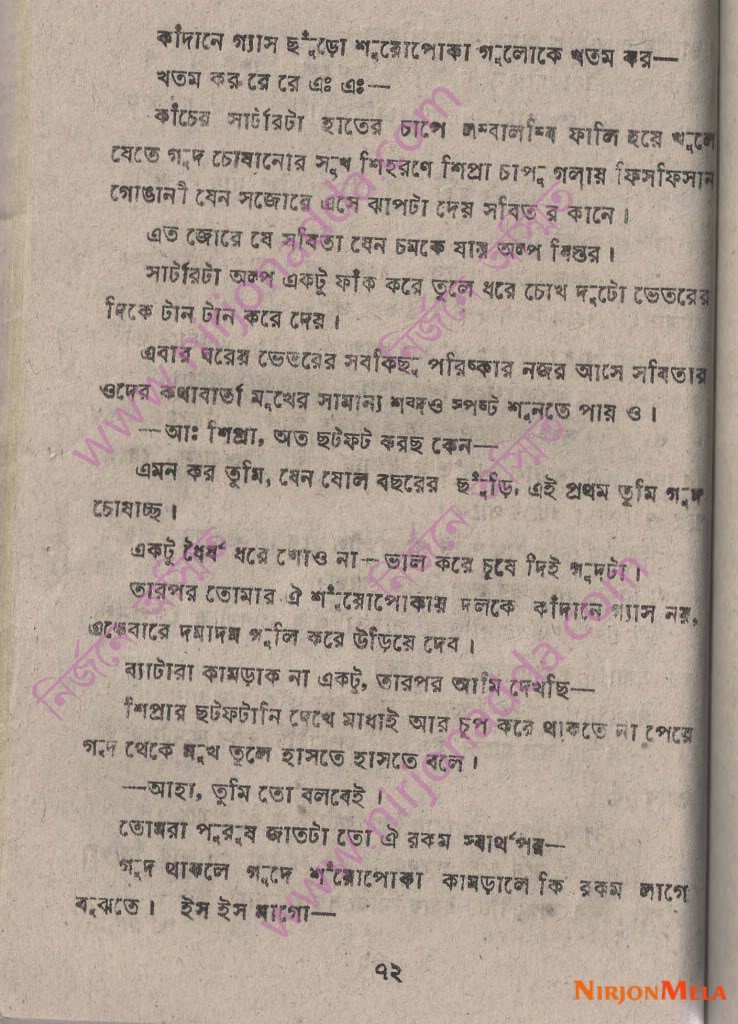 কাঁদানে গ্যাস ছুঁড়ো শুঁয়োপোকা গুলোকে খতম কর—
খতম কর রে রে এঃ এঃ—
কাঁচের সার্টারটা হাতের চাপে লম্বালম্বি ফালি হয়ে খুলে
যেতে গুদ চোষানোর সুখ শিহরণে শিপ্রা চাপু গলায় ফিসফিসান
গোঙানী যেন সজোরে এসে ঝাপটা দেয় সবিত র কানে ।
এত জোরে যে সবিতা যেন চমকে যায় অল্প বিস্তর ।
সার্টারটা অল্প একটু ফাঁক করে তুলে ধরে চোখ দুটো ভেতরের
দিকে টান টান করে দেয় ।
এবার ঘরের ভেতরের সবকিছু পরিষ্কার নজর আসে সবিতার
ওদের কথাবার্তা মুখের সামান্য শব্দও স্পষ্ট শুনতে পায় ও ।
—আঃ শিপ্রা, অত ছটফট করছ কেন—
এমন কর তুমি, যেন ষোল বছরের ছুঁড়ি, এই প্রথম তুমি গুদ
চোষাচ্ছ ।
একটু ধৈর্য ধরে শোও না—ভাল করে চুষে দিই গুদটা ।
তারপর তোমার ঐ শুঁয়োপোকায় দলকে কাঁদানে গ্যাস নয়,
একেবারে দমাদম গুলি করে উড়িয়ে দেব ।
ব্যাটারা কামড়াক না একটু, তারপর আমি দেখছি—
শিপ্রার ছটফটানি দেখে মাধাই আর চুপ করে থাকতে না পেরে
গুদ থেকে মুখ তুলে হাসতে হাসতে বলে ।
—আহা, তুমি তো বলবেই ।
তোমরা পুরুষ জাতটা তো ঐ রকম স্বার্থপর—
গুদ থাকলে গুদে শুঁয়োপোকা কামড়ালে কি রকম লাগে
বুঝতে । ইস ইস মাগো—
৭২
www.nirjonadda.com
নির্জনে
www.nirjonadda.com
NIRJONMELA